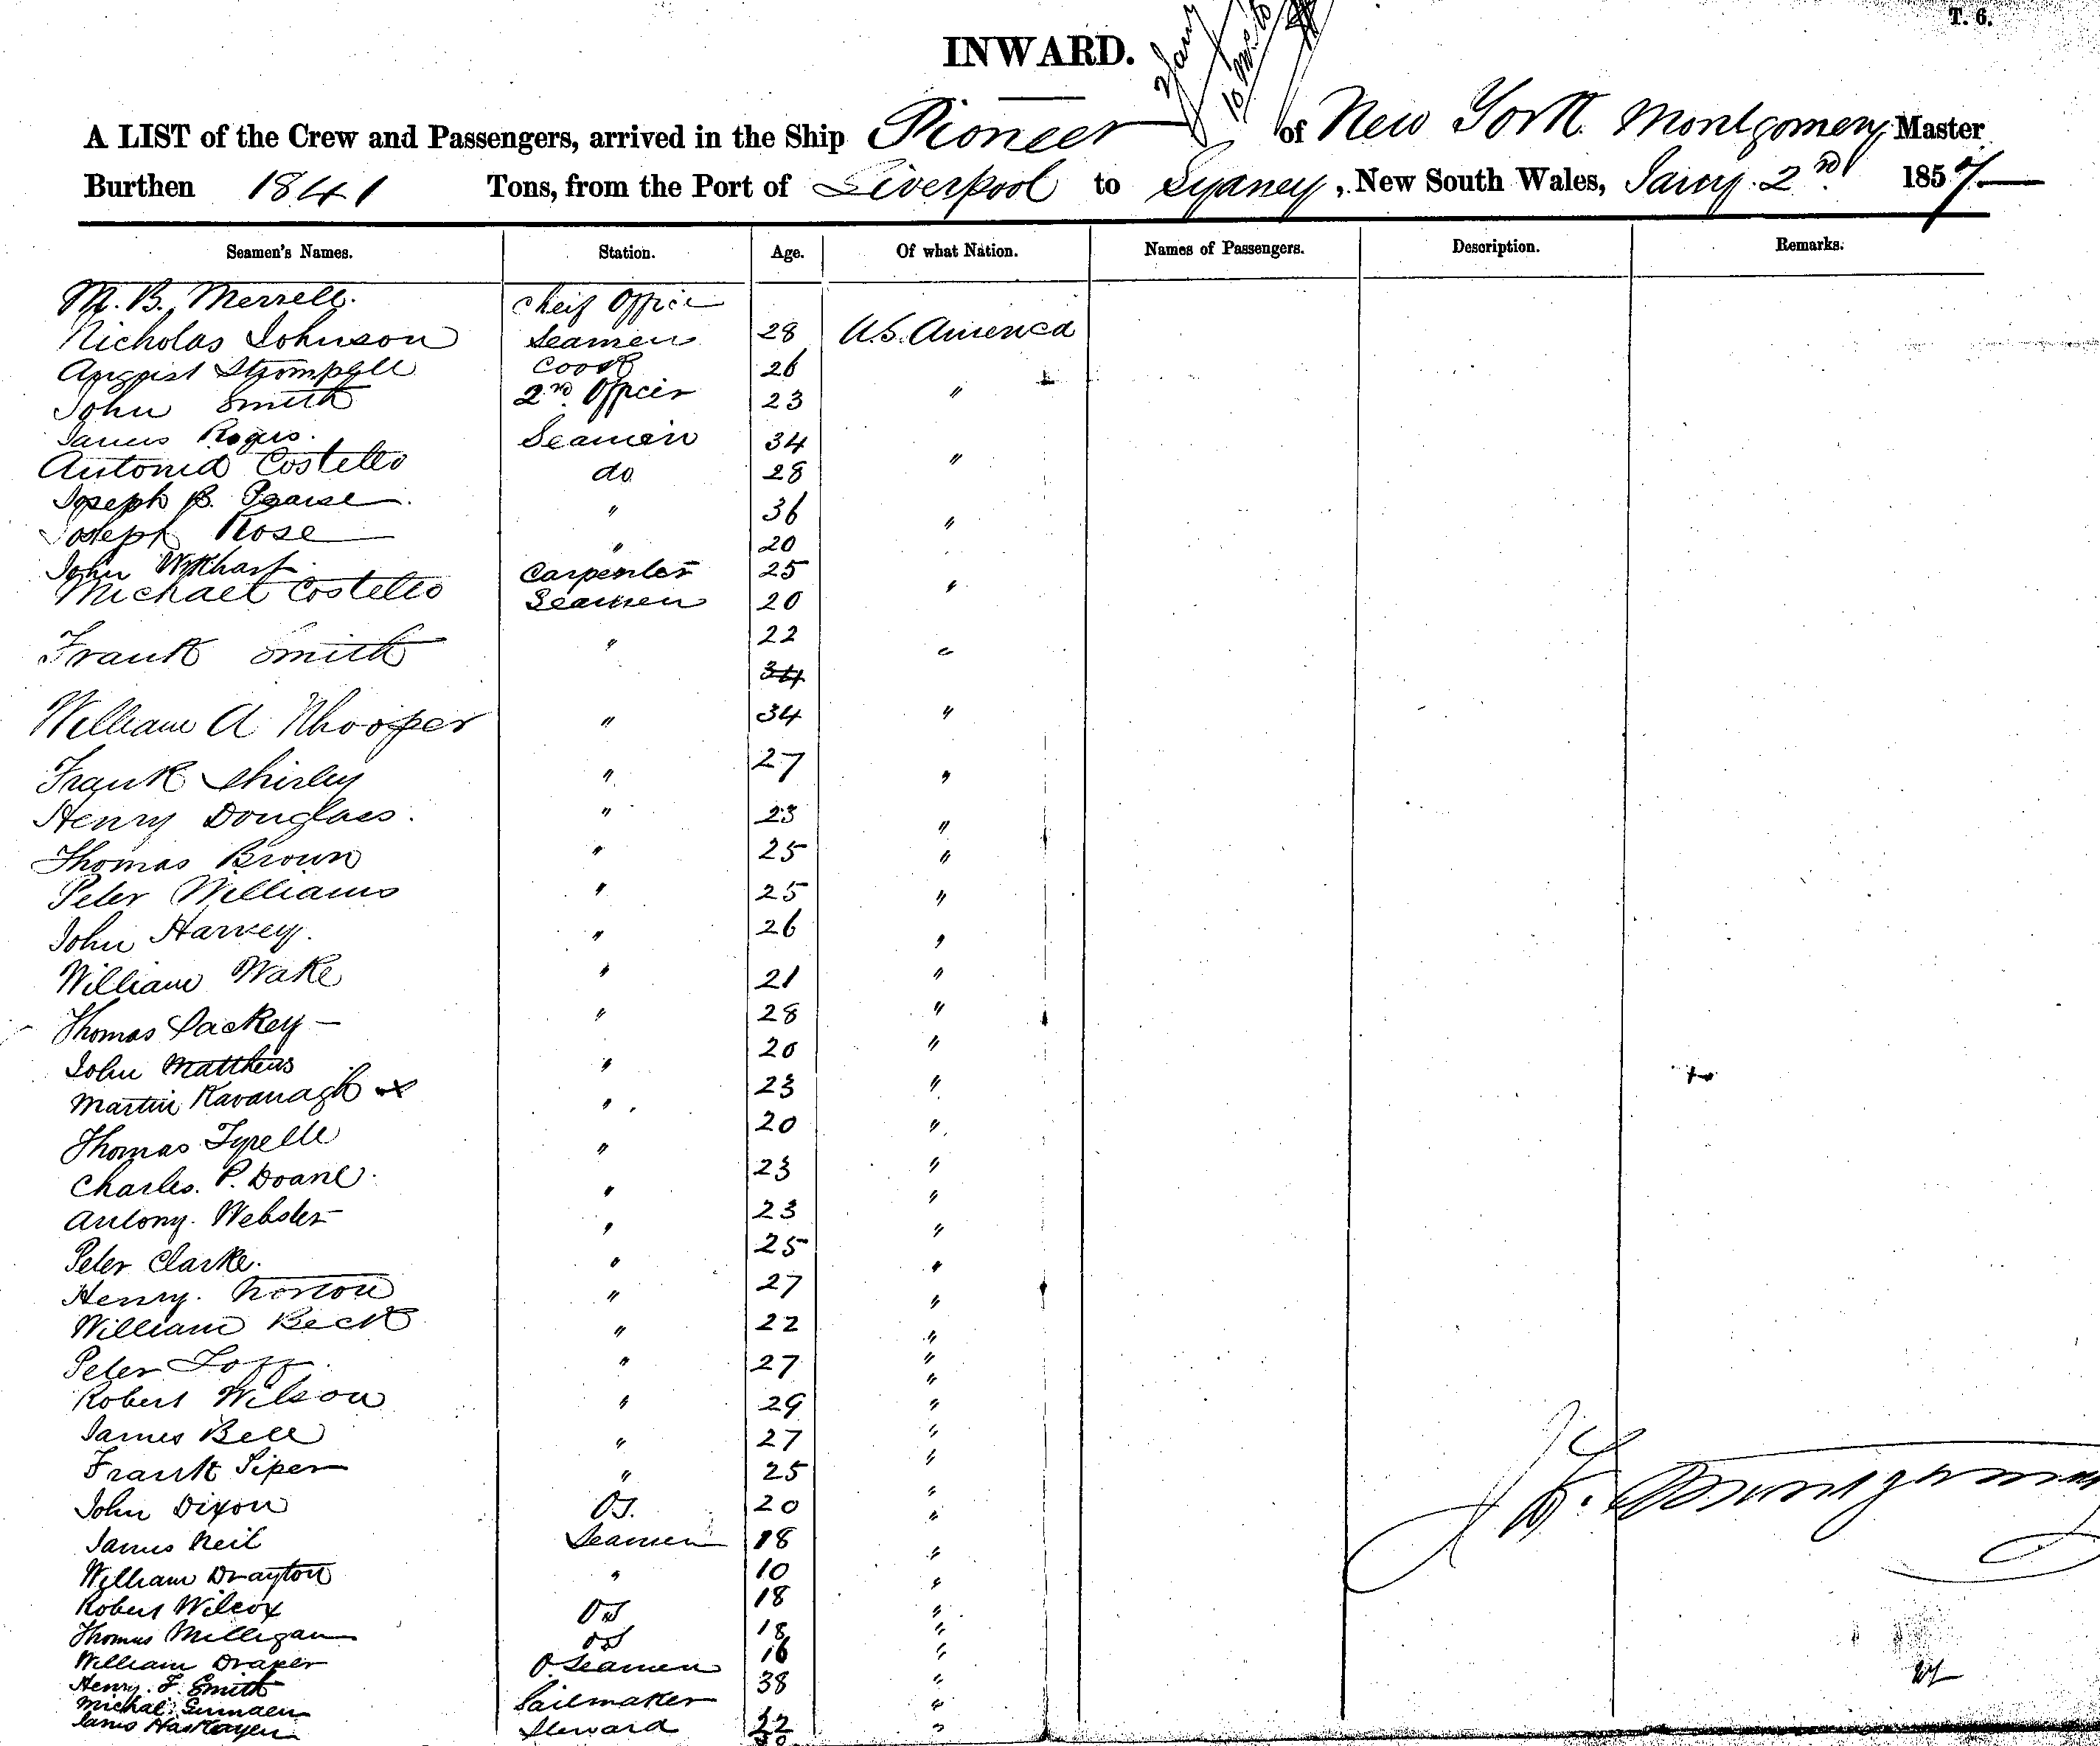 T. 6.
INWARD.
A LIST of the Crew and Passengers, arrived in the Ship Pioneer of New York Montgomery Master
Burthen 1841 Tons, from the Port of Liverpool to Sydney, New South Wales, Jany. 2nd 1857
Seamen's Names. Station. Age. Of what Nation. Names of Passengers. Description. Remarks.
M. B. Merrell. Cheif Officer
Nicholas Johnson Seamen 28 U.S. America
August Strompell Cook 26
John Smith 2nd Officer 23 "
James Rogers. Seamen 34
Antonio Costello do 28 "
Joseph B. Pearse. " 36
Joseph Rose " 20 "
John Carpenter 25
Michael Costello Seamen 20 "
Frank Smith " 22 "
34
William A Whooper " 34 "
Frank Shirley " 27 "
Henry Douglass. " 23 "
Thomas Brown " 25 "
Peter Williams " 25 "
John Harvey. " 26 "
William Wake " 21 "
Thomas Lackey " 28 "
John Matthews " 20 "
Martin Kavanagh x " 23 "
Thomas Tyrelle " 20 "
Charles. P. Doane. " 23 "
Antony. Webster " 23 "
Peter Clarke. " 25 "
Henry. Norton " 27 "
William Beck " 22 "
Peter " 27 "
Robert Wilson " 29 "
James Bell " 27 "
Frank Piper " 25 "
John Dixon OS. 20 "
James Neil Seamen 18 "
William Drayton " 10 "
Robert Wilcox OS 18 "
Thomas Milligan OS 18 "
William Draper O. Seamen 16 "
Henry. F. Smith Sailmaker 38 "
Michal Steward 22 "
James
Montgomery